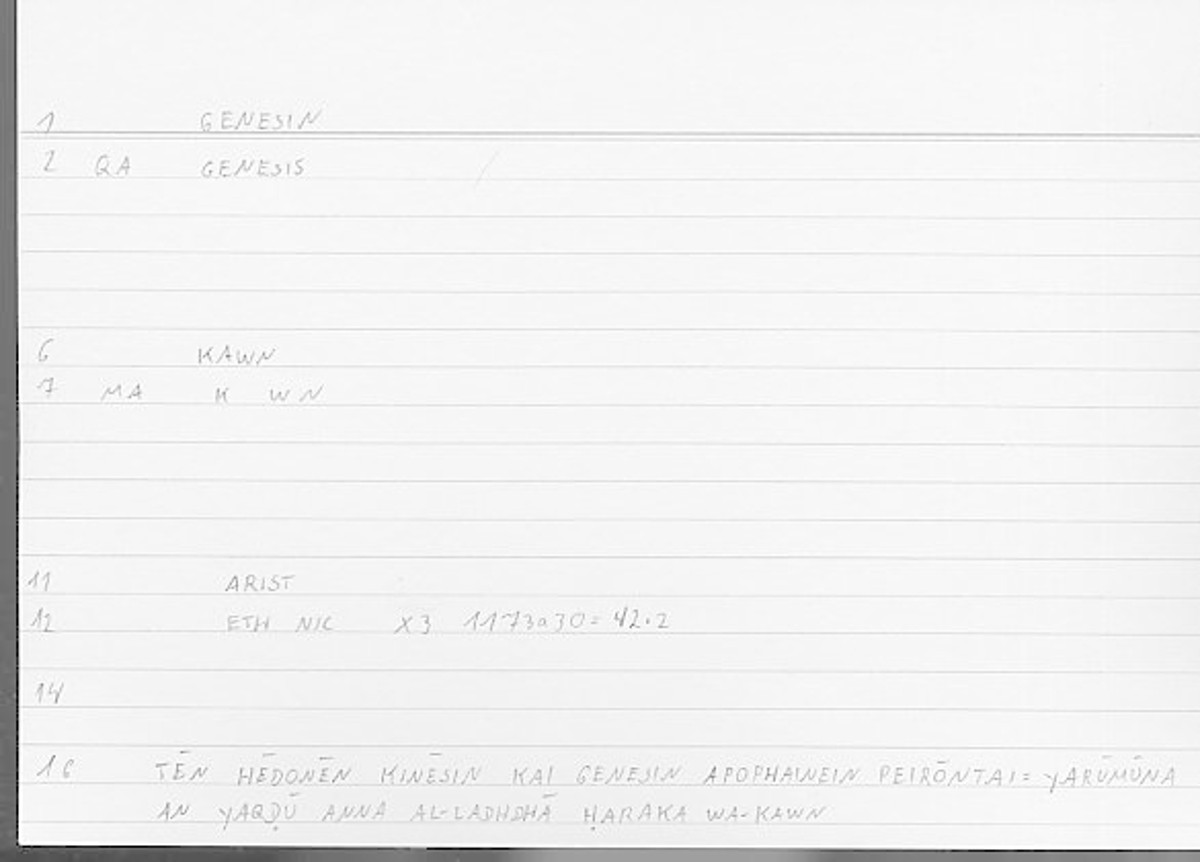 1 GENESIN
2 QA GENESIS
6 KAWN
7 MA K WN
11 ARIST
12 ETH NIC X3 1173a30= 42.2
14
16 TĒN HĒDONĒN KINĒSIN KAI GENESIN APOPHAINEIN PEIRŌNTAI= YARŪMŪNA
AN YAQḌŪ ANNA AL-LADHDHĀ ḤARAKA WA-KAWN